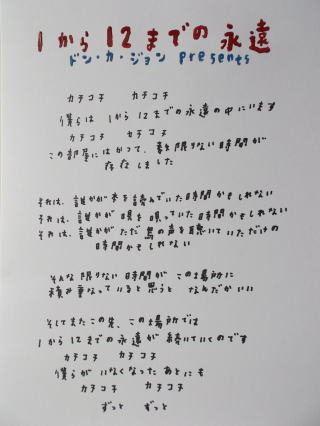 1から12までの永遠
ドン・カ・ジョン presents
カチコチ カチコチ
僕らは 1から12までの永遠の中にいます
カチコチ カチコチ
この部屋にはかつて、数え限りない時間が
存在しました
それは、誰かが本を読んでいた時間かもしれない
それは、誰かが唄を唄っていた時間かもしれない
それは、誰かがただ鳥の声を聴いていただけの
時間かもしれない
そんな限りない時間が この場所に
積み重なっていると思うと なんだかいい
そしてまたこの先、この場所では
1から12までの永遠が続いていくのです
カチコチ カチコチ
僕らが いなくなったあとにも
カチコチ カチコチ
ずっと ずっと